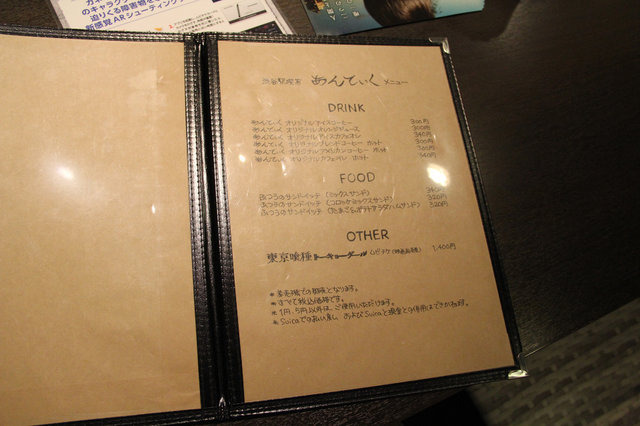 のキャラク
迫りくる障害物を
新感覚ARシューティング
渋谷駅喫茶 あんていく メニュー
DRINK
あんていく オリジナルアイスコーヒー 300円
あんていく オリジナルオレンジジュース 300円
あんていく オリジナルアイスカフェオレ 340円
あんていく オリジナルブレンドコーヒー ホット 300円
あんていく オリジナルアメリカンコーヒー ホット 300円
あんていく オリジナルカフェオレ ホット 340円
FOOD
ふつうのサンドイッチ (ミックスサンド)
ふつうのサンドイッチ (コロッケミックスサンド) 320円
ふつうのサンドイッチ (たまご&ポテトサラダハムサンド) 320円
OTHER
東京喰種トーキョーグール ムビチケ(映画前売券) 1,400円
*券売機での販売となります。
*すべて税込価格です。
*1円、5円以外は、ご使用いただけます。
*Suicaでのお払い戻し、およびSuicaと現金との併用はできかねます。